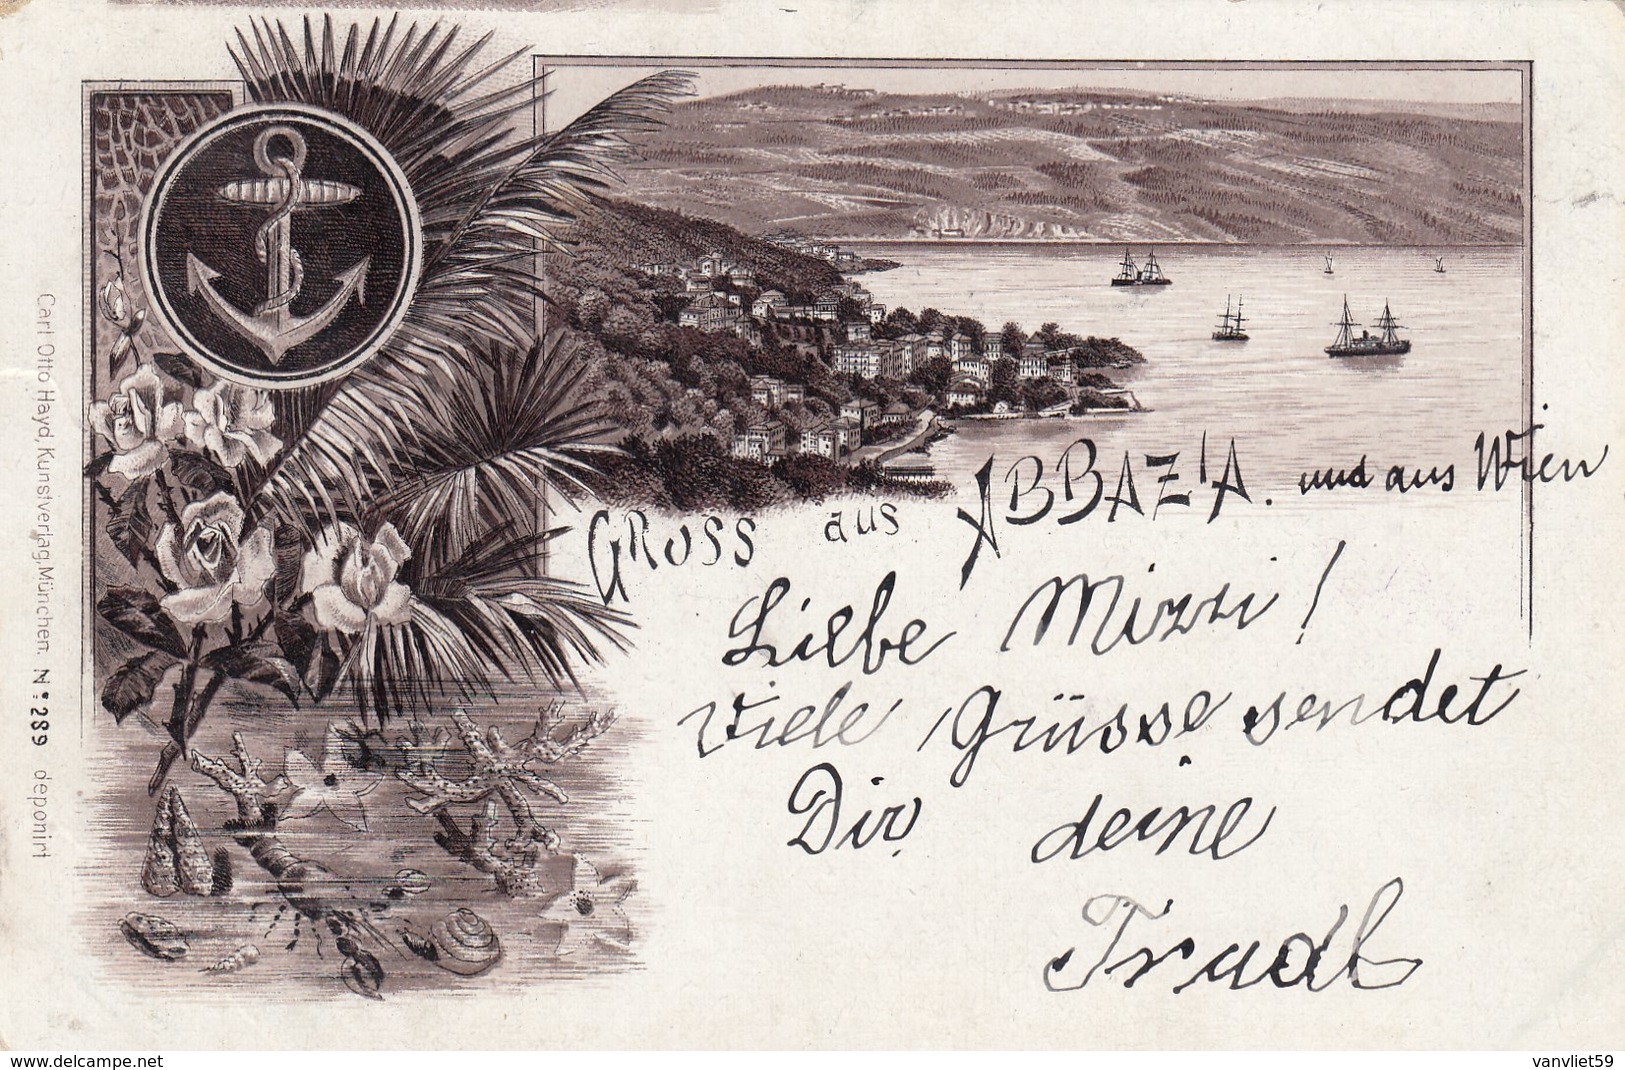 Gruss aus ABBAZIA. und aus Wien
Liebe Mizzi!
Viele Grüsse sendet
Dir deine
Trudl
Carl Otto Hayd, Kunstverlag, München. No. 289 deponirt
www.delcampe.net
vanvliet59